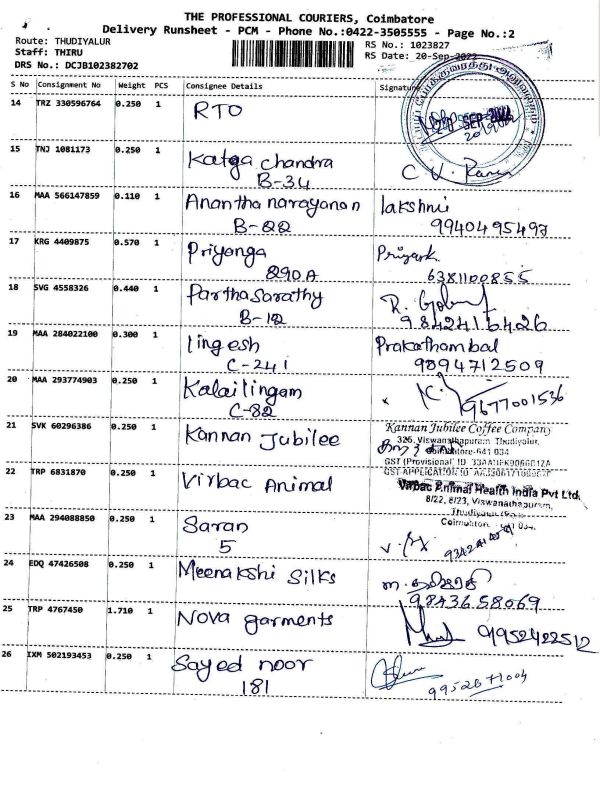 THE PROFESSIONAL COURIERS, Coimbatore
Delivery Runsheet - PCM - Phone No.:0422-3505555 - Page No.:2
Route: THUDIYALUR
RS No.: 1023827
Staff: THIRU
RS Date: 20-Sep-2022
DRS No.: DCJB102382702
S No Consignment No Weight PCS Consignee Details Signature
14 TRZ 330596764 0.250 1 RTO
15 TNJ 1081173 0.250 1 Katga chandra
B-34
16 MAA 566147859 0.110 1 Anantha narayanan lakshmi
B-22 9940495497
17 KRG 4409875 0.570 1 Priyanga
290A 6381100855
18 SVG 4558326 0.440 1 Parthasarathy
B-12 9842415426
19 MAA 284022100 0.300 1 lingesh Prakathambal
C-241 9894712509
20 MAA 293774903 0.250 1 Kalailingam
C-82 9677001536
21 SVK 60296386 0.250 1 Kannan Jubilee Kannan Jubilee Coffee Company
326, Viswanathapuram, Thudiyalur,
Coimbatore-641 034
22 TRP 6831870 0.250 1 Virbac Animal Virbac Animal Health India Pvt Ltd,
8/22, 8/23, Viswanathapuram,
23 MAA 294088850 0.250 1 Saran
5
24 EDQ 47426508 0.250 1 Meenakshi Silks
9843658069
25 TRP 4767450 1.710 1 Nova garments 9952422512
26 IXM 502193453 0.250 1 Sayed noor
181